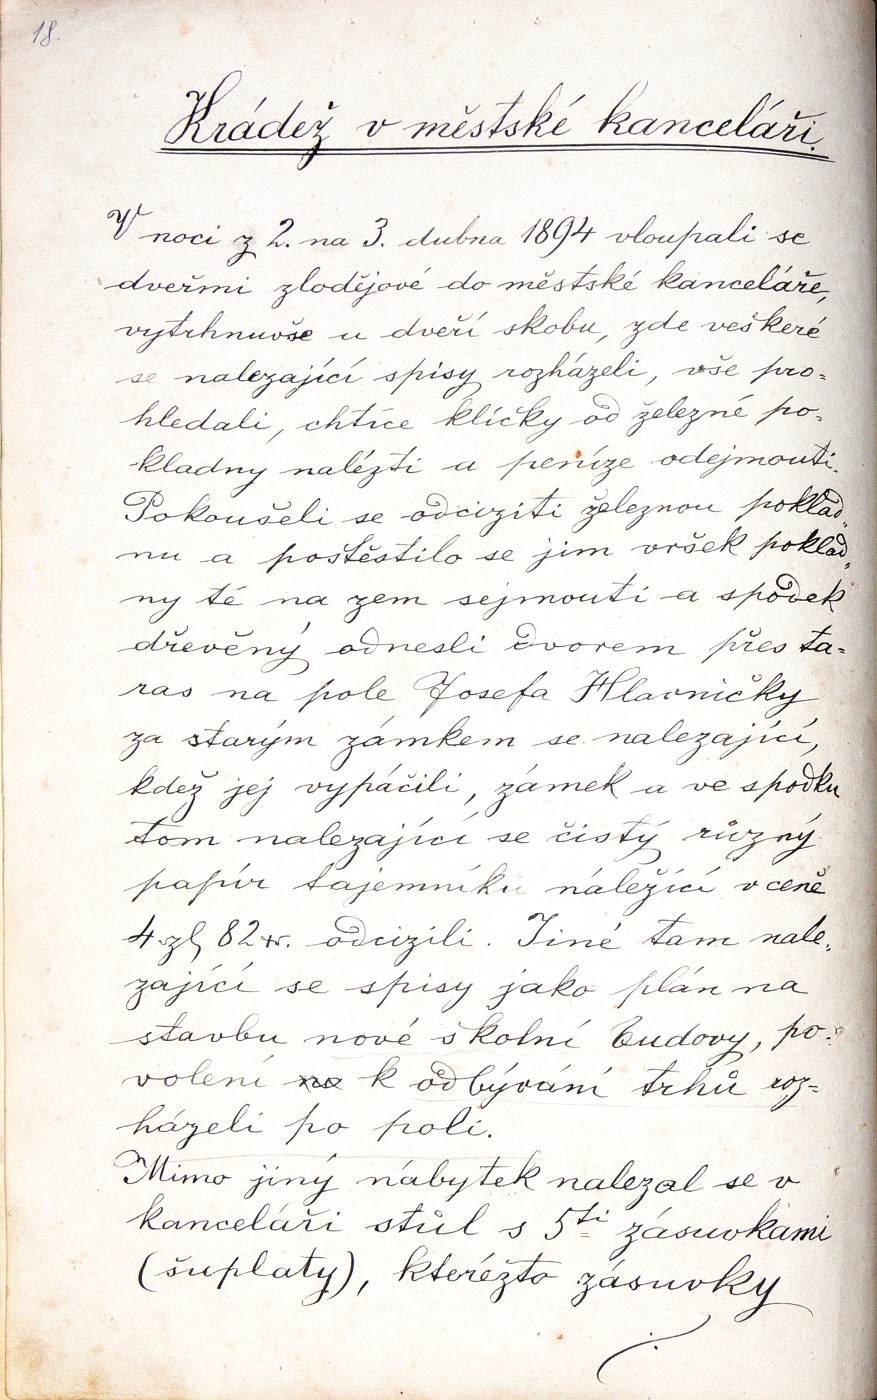 18.
Krádež v městské kanceláři.
V noci z 2. na 3. dubna 1894 vloupali se
dveřmi zlodějové do městské kanceláře,
vytrhnuvše u dveří skobu, zde veškeré
se nalezající spisy rozházeli, vše pro-
hledali, chtíce klíčky od železné po-
kladny nalézti a peníze odejmouti.
Pokoušeli se odciziti železnou poklad-
nu a poštěstilo se jim vršek poklad-
ny té na zem sejmouti a spodek
dřevěný odnesli dvorem přes ta-
ras na pole Josefa Hlavničky
za starým zámkem se nalezající,
kdež jej vypáčili, zámek a ve spodku
tom nalezající se čistý různý
papír tajemníku náležící v ceně
4 zl 82 kr. odcizili. Jiné tam nale-
zající se spisy jako plán na
stavbu nové školní budovy, po-
volení k odbývání trhů roz-
házeli po poli.
Mimo jiný nábytek nalezal se v
kanceláři stůl s 5ti zásuvkami
(šuplaty), kterézto zásuvky